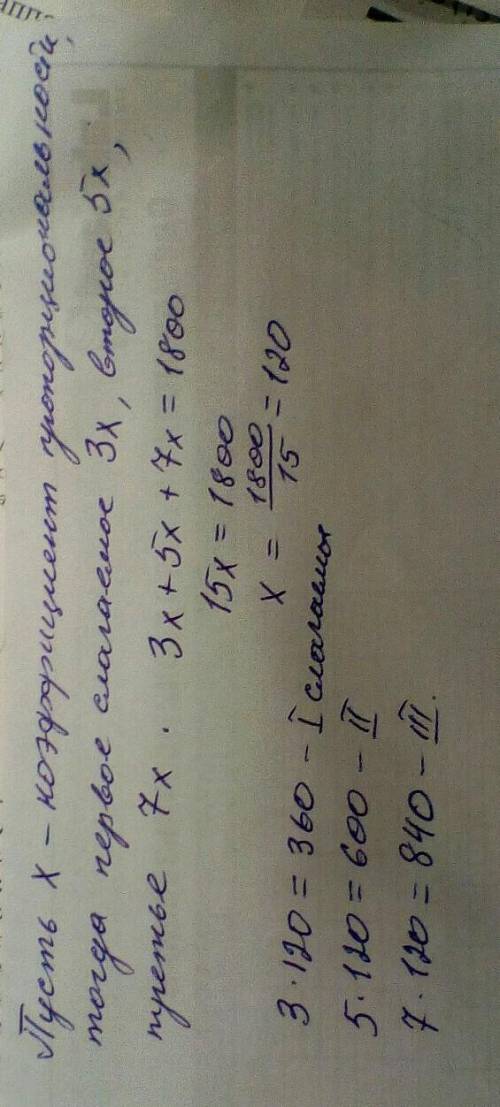 Пусть x - коэффициент пропорциональности,
тогда первое слагаемое 3x, второе 5x,
третье 7x. 3x + 5x + 7x = 1800
15x = 1800
x = 1800/15 = 120
3·120 = 360 - I слагаемое
5·120 = 600 - II
7·120 = 840 - III.